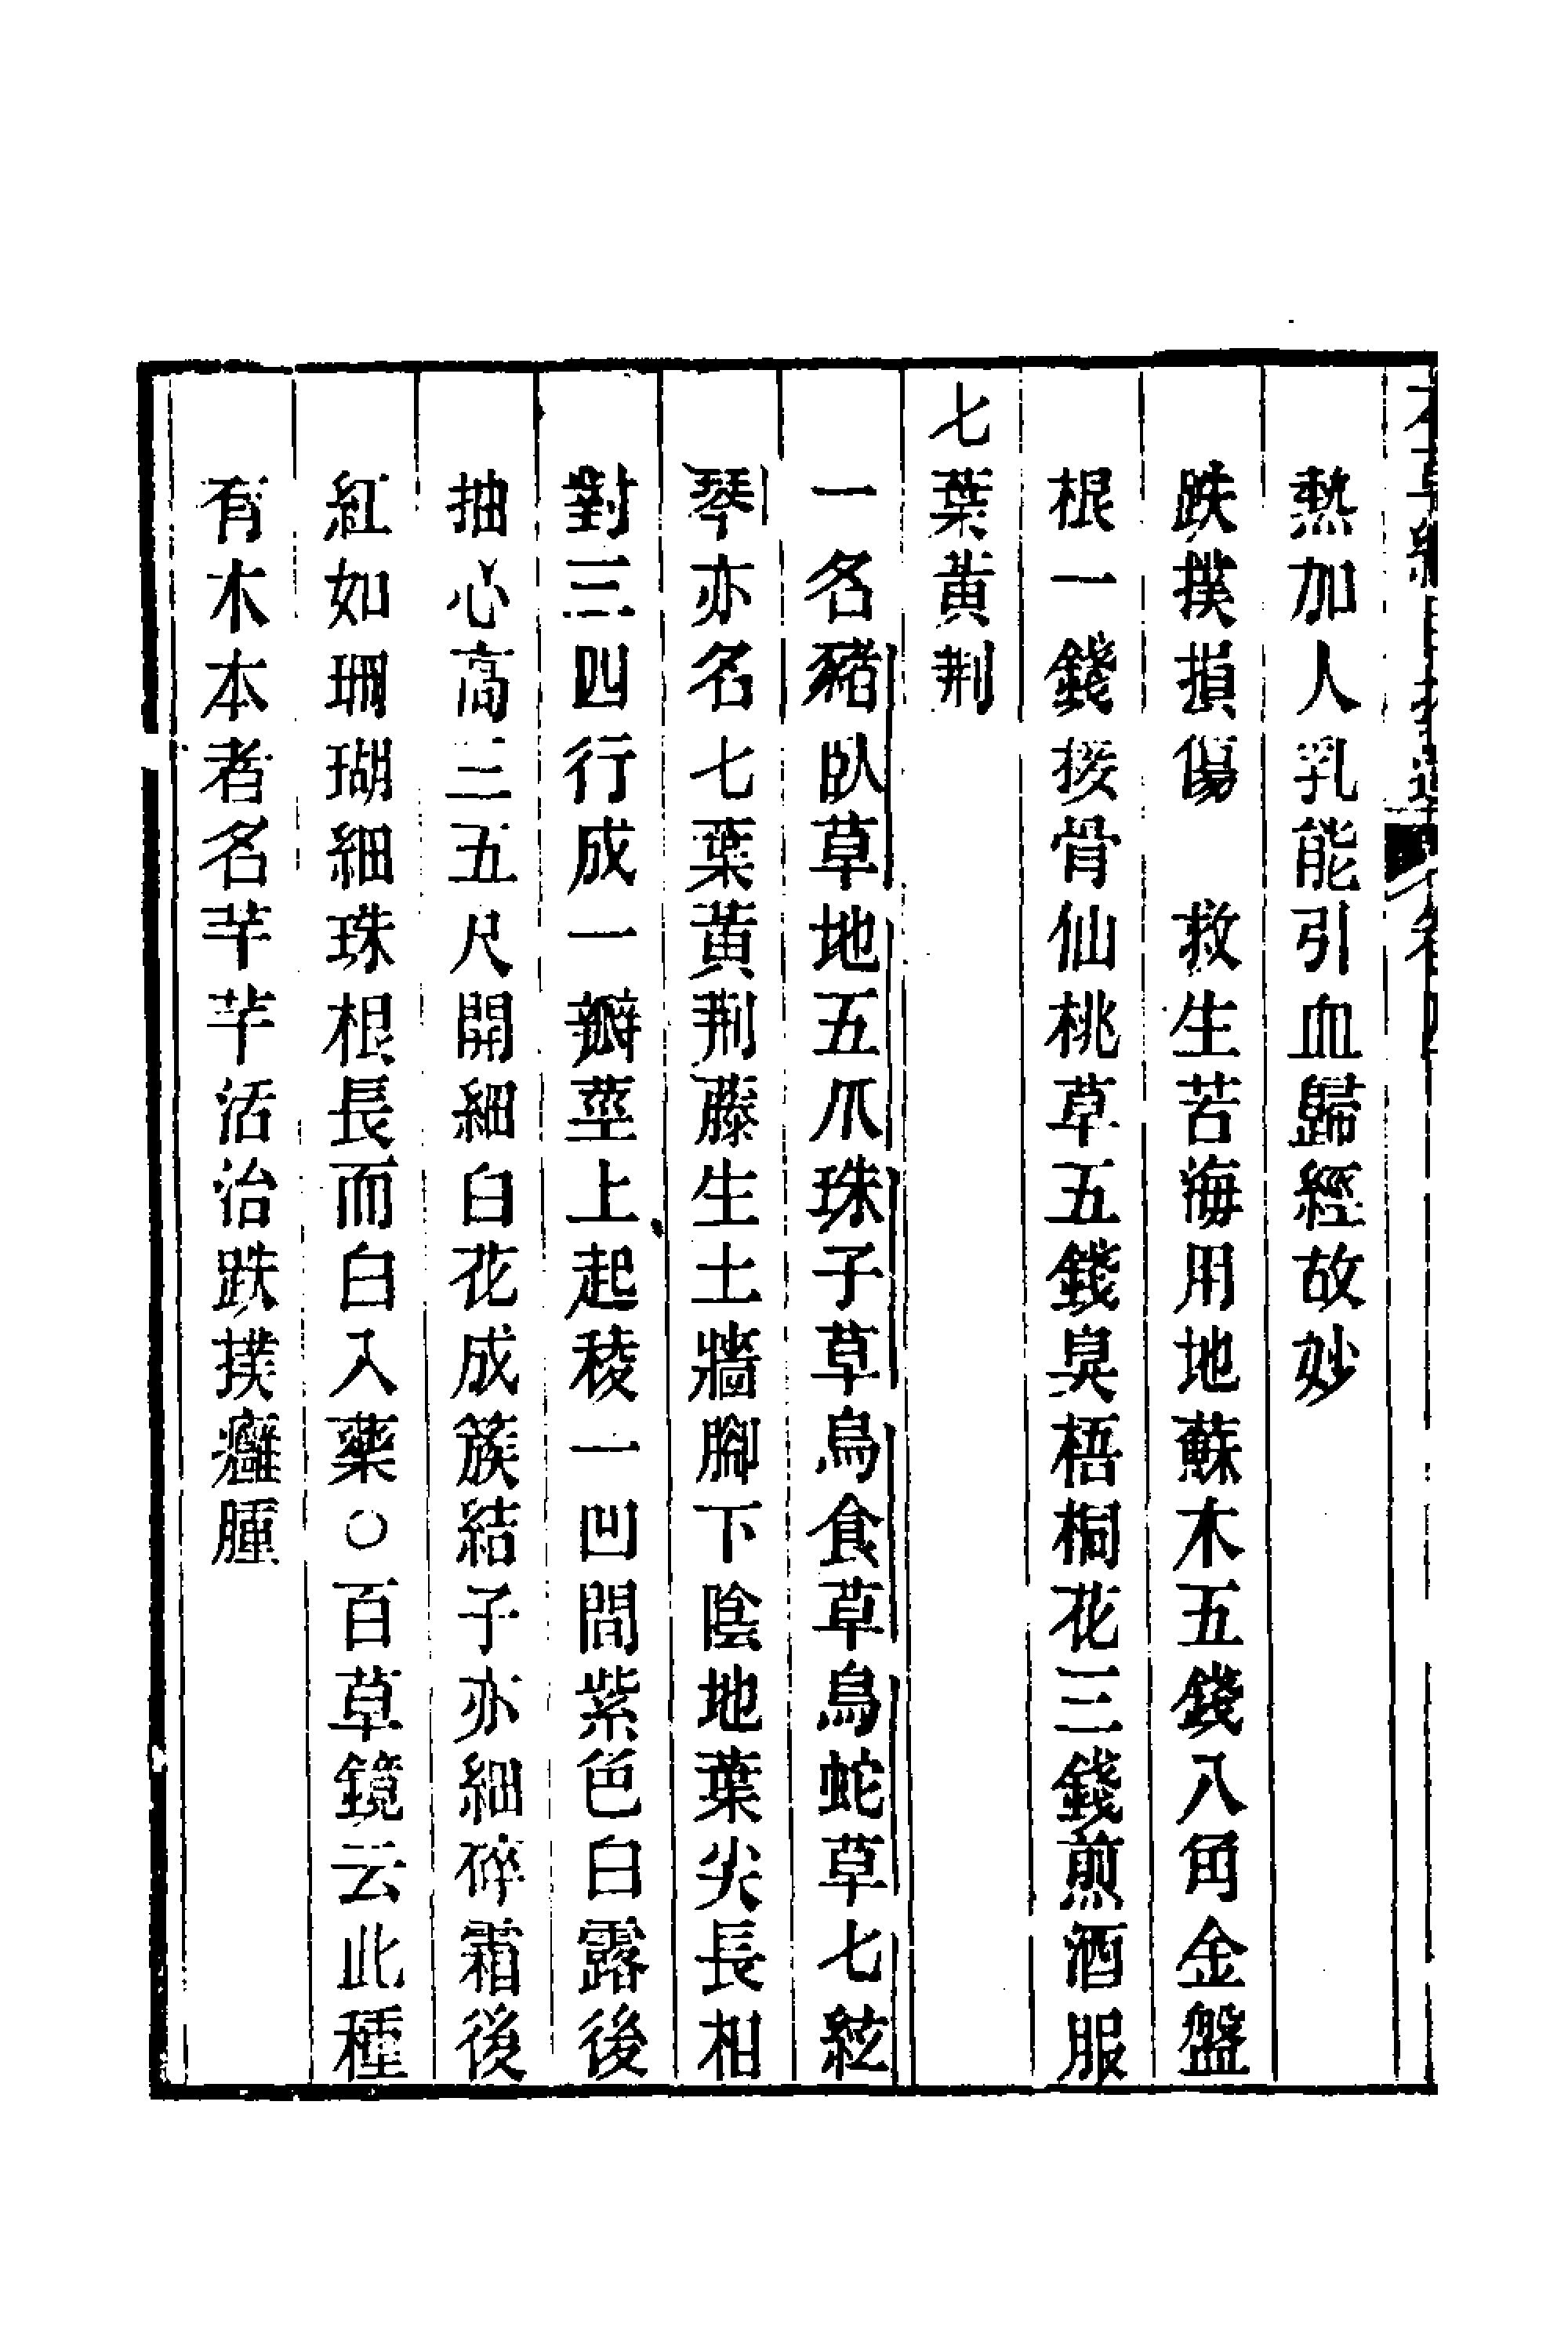 熱加人乳能引血歸經故妙
跌撲損傷　救生苦海用地蘇木五錢八角金盤
根一錢接骨仙桃草五錢臭梧桐花三錢煎酒服
七葉黃荆
一名豬臥草地五爪珠子草烏食草烏蛇草七絃
琴亦名七葉黃荆藤生土牆腳下陰地葉尖長相
對三四行成一瓣莖上起稜一凹間紫色白露後
抽心高三五尺開細白花成簇結子亦細碎霜後
紅如珊瑚細珠根長而白入藥○百草鏡云此種
有木本者名芊芊活治跌撲癰腫